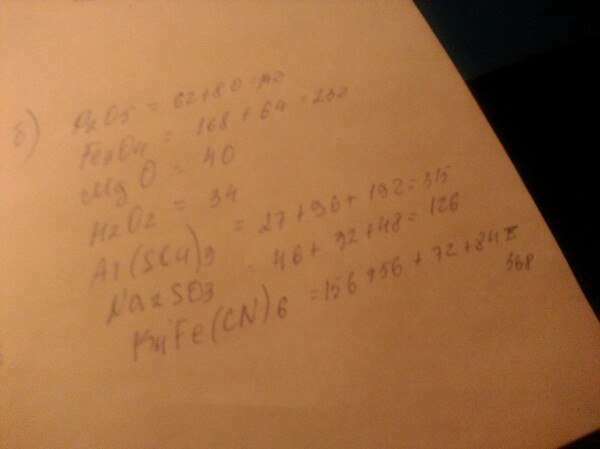 б) P2O5 = 62+80=142
Fe3O4 = 168 + 64 = 232
MgO = 40
H2O2 = 34
Al(SO4)3 = 27+96+192=315
Na2SO3 = 46+32+48=126
K4Fe(CN)6 = 156+56+72+84=
368